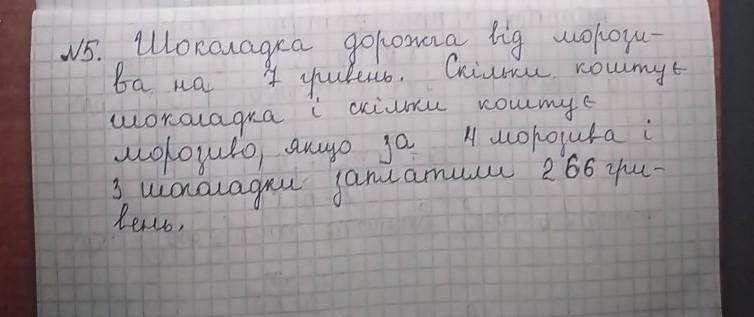 №5. Шоколадка дорожча від морози-
ва на 7 гривень. Скільки коштує
шоколадка і скільки коштує
морозиво, якщо за 4 морозива і
3 шоколадки заплатили 266 гри-
вень.